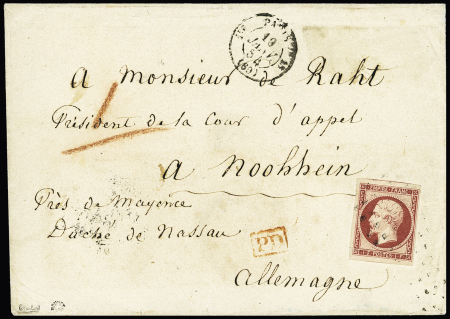 PARIS
19
JANV.
54
(60)
A Monsieur de Raht
Président de la Cour d'appel
A Hochhein
Près de Mayence
Duché de Nassau
PD
Allemagne
EMPIRE FRANC
1 F POSTES 1 F